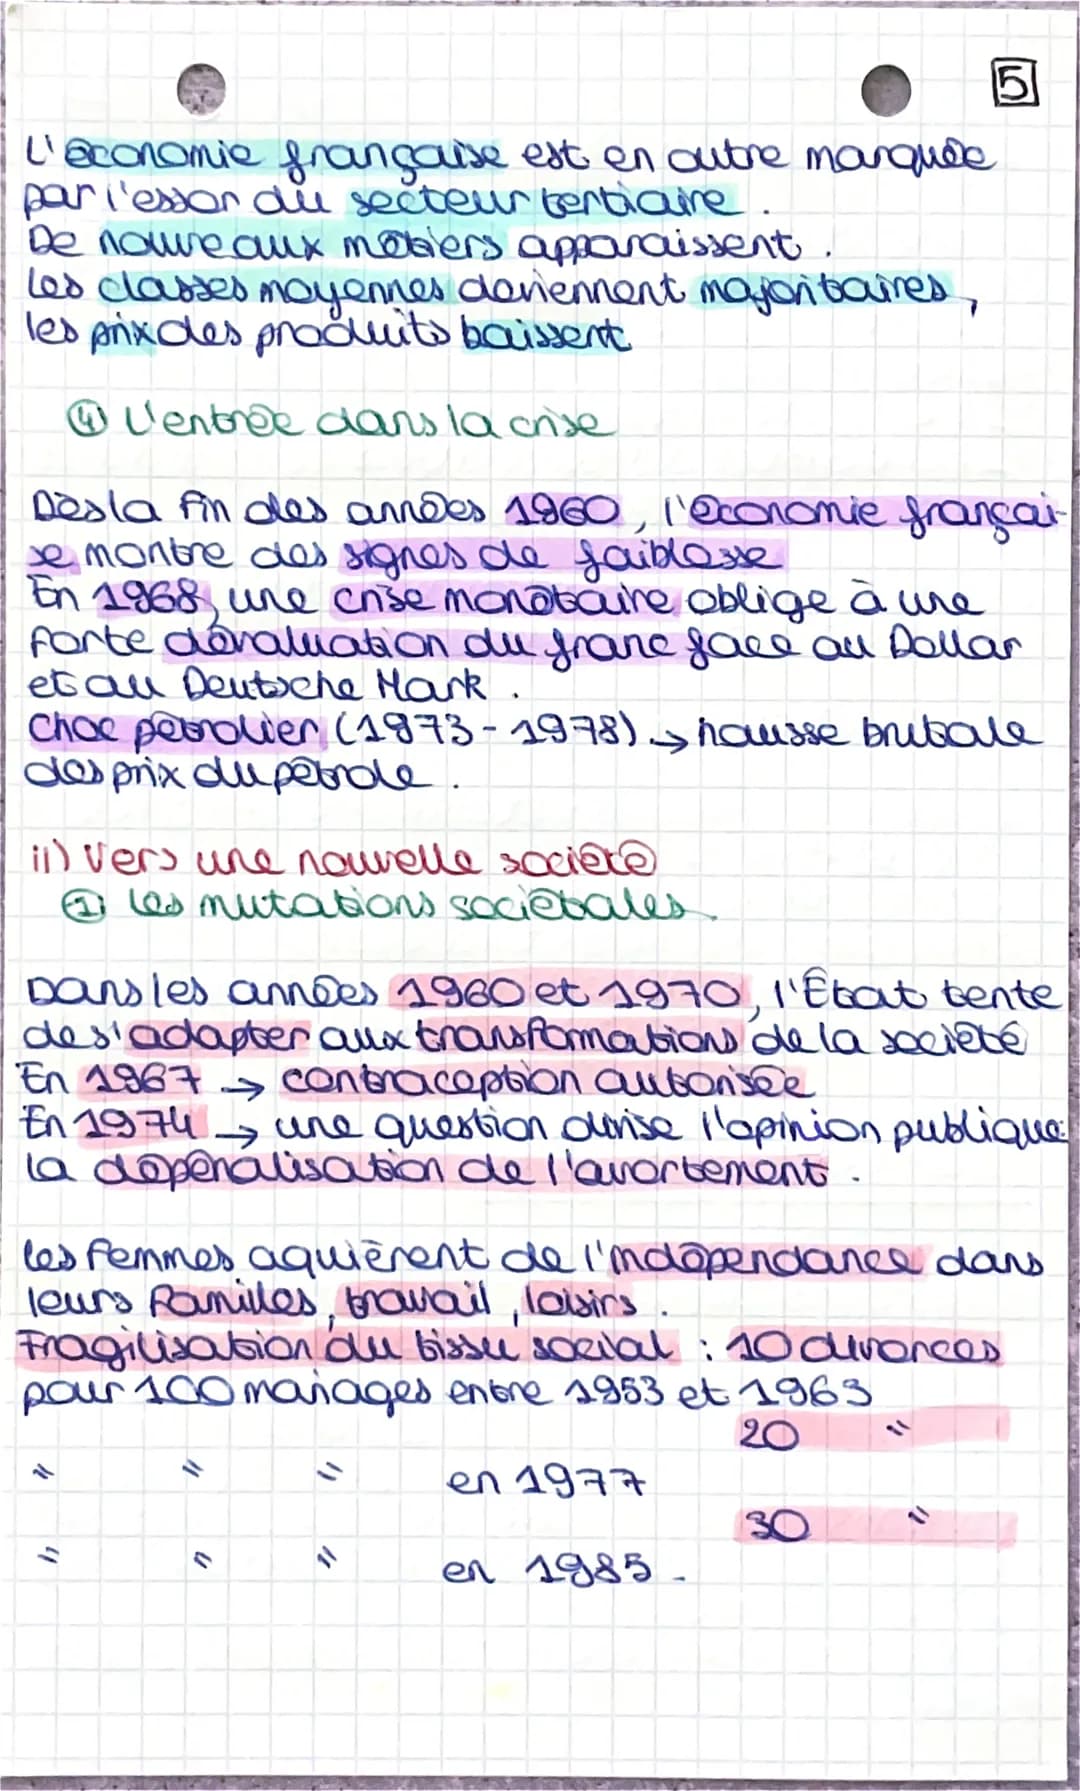 5
L'économie française est en outre marquée
par l'essor du secteur tertiaire.
De nouveaux métiers apparaissent.
Les classes moyennes deviennent majoritaires,
les prix des produits baissent
④ L'entrée dans la crise
Dès la fin des années 1960, l'économie françai-
se montre des signes de faiblesse
En 1968, une crise monétaire oblige à une
forte dévaluation du franc face au Dollar
et au Deutsche Mark.
Choc pétrolier (1973-1978) → hausse brutale
des prix du pétrole.
II) Vers une nouvelle société
① Les mutations sociétales.
Dans les années 1960 et 1970, l'État tente
de s'adapter aux transformations de la société
En 1967 → contraception autorisée
En 1974 → une question divise l'opinion publique:
la dépénalisation de l'avortement.
Les femmes aquièrent de l'indépendance dans
leurs familles, travail, loisirs.
Fragilisation du tissu social : 10 divorces
pour 100 mariages entre 1953 et 1963
20 "
" " " en 1977
30 "
" " " en 1985.